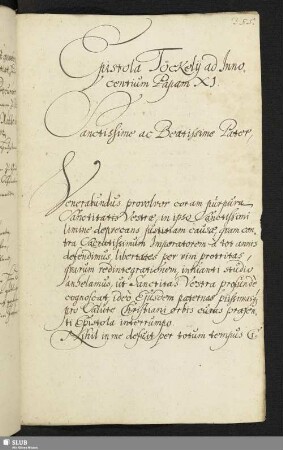 255.
Epistola Tőckely ad Inno,
centium Papam XI.
Sanctissime ac Beatissime Pater,
Venerabundus provolvor coram purpura
Sanctitatis Vestrae, in ipso Sanctissimi
limine deprecans justulam causae, quam con
tra Sacratissimum Imperatorem à tot annis
defendimus, libertates per vim protritas,
quarum redintegrationem, inhianti studio
anhelamus, ut Sanctitas Vestra proinde
cognoscat, ideò Ejusdem paternas pijssimasq
pro Salute Christiani orbis curas praesen
ti Epistola interrumpo.
Nihil in me defuit per totum tempus
SLUB